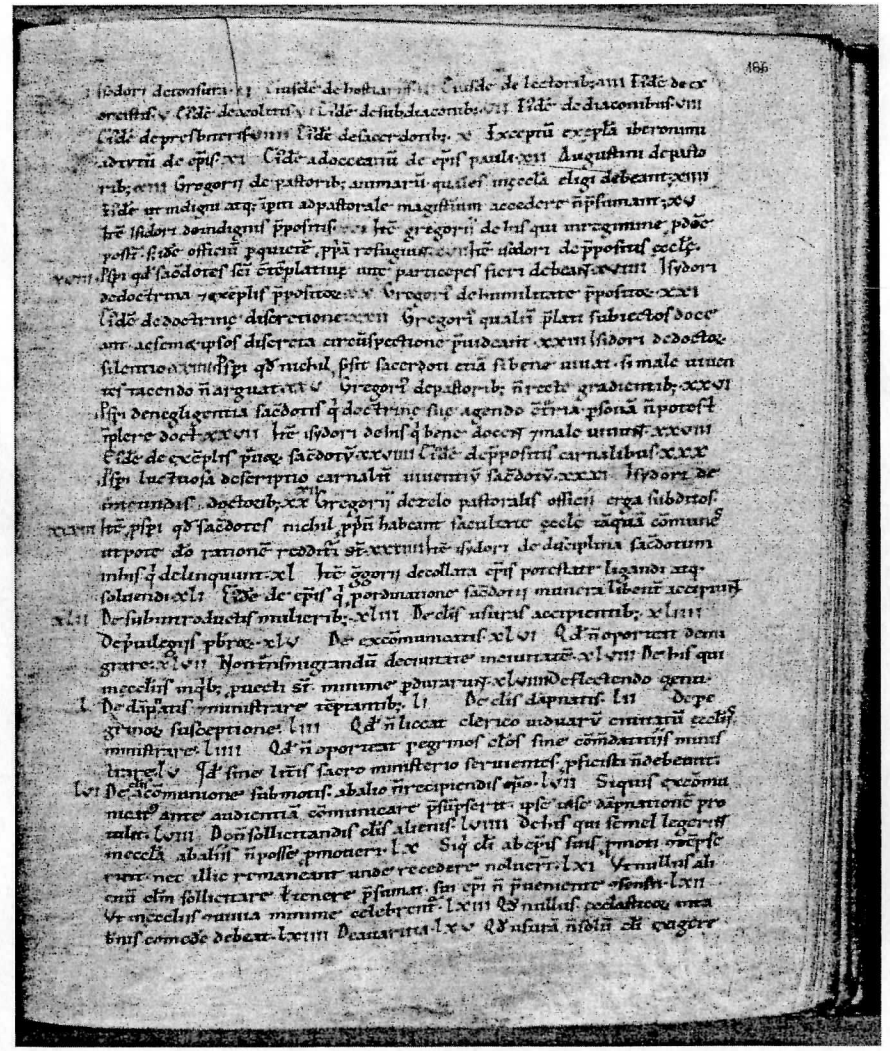 186
isidori de tonsura. II Eiusdē de hostiariis. III Eiusdē de lectorib; IIII Eiusdē de ex
orcistis. V Eiusdē de acolitis. VI Eiusdē de subdiaconib; VII Eiusdē de diaconibus. VIII
Eiusdē de presbiteris. VIIII Eiusdē de sacerdotib; X Exceptū exeplā iheronimi
ad titū de ep̄is. XI Eiusdē ad occeanū de ep̄is pauli. XII Augustini de pasto
rib; XIII Gregorii de pastorib; animarū quales in eccl̄a eligi debeant. XIIII
Eiusdē ut indigni atq; īpiti ad pastorale magistriū accedere n̄ p̄sumant. XV
Itē isidori de indignis p̄positis. XVI Itē gregorii de his qui in regimine
post sedē officiū p quietē ppā refugiunt. XVII Itē isidori de p̄positis eccl̄ę.
XVIII Pspi qd̄ sac̄dotes sc̄i cōtēplatiuę uitę participes fieri debeant. XVIIII Isydori
de doctrina ⁊ exēplis p̄positoꝝ. XX Gregorī de humilitate p̄positoꝝ. XXI
Eiusdē de doctrinę discretione. XXII Gregorī qualit̄ p̄lati subiectos doce
ant. ac semetipsos discreta circūspectione p̄uideant. XXIII Isidori de doctoꝝ
silentio. XXIIII Pspi qd̄ nichil psit sacerdoti etiā si bene uiuat. si male uiuen
tes tacendo n̄ arguat. XXV Gregorī de pastorib; n̄ recte gradientib; XXVI
Pspi de negligentia sac̄dotis q̄ doctrinę suę agendo cōtria psonā n̄ potest
īplere doct̄. XXVII Itē isydori de his q̄ bene docent ⁊ male uiuunt. XXVIII
Eiusdē de exēplis prauoꝝ sac̄dotū. XXVIIII Eiusdē de p̄positis carnalibus. XXX
Pspi luctuosa descriptio carnaliū uiuentiū sac̄dotū. XXXI Isydori de
iracundis doctorib; XXXII Gregorii de zelo pastoralis officii erga subditos.
Itē pspi qd̄ sac̄dotes nichil ppiū habeant facultatē eccl̄ę tāquā cōmunē
utpote dō rationē reddituri st̄. Itē isydori de disciplina sac̄dotum
in his q̄ delinquunt. XL Itē ḡgorii de collata ep̄is potestate ligandi atq;
soluendi. XLI Eiusdē de ep̄is q̄ p ordinatione sac̄dotii munera libent̄ accipiunt
XLII De subintroductis mulierib; XLIII De cl̄is usuras accipientib; XLIIII
De p̄uilegiis pbroꝝ. XLV De excōmunicatis. XLVI Qd̄ n̄ oporteat demi
grare. XLVII Non trānsmigrandū de ciuitate in ciuitatē. XLVIII De his qui
in eccl̄iis in q̄b; puecti st̄. minime pdurarunt. XLVIIII De flectendo genu.
L De dāpnatis ⁊ ministrare tēptantib; LI De cl̄is dāpnatis. LII De pe
grinoꝝ susceptione. LIII Qd̄ n̄ liceat clerico uiduarū ciuitatū eccl̄iis
ministrare. LIIII Qd̄ n̄ oporteat pegrinos cl̄os sine cōmdatitiis minis
trare. LV Qd̄ sine litt̄is sacro ministerio seruientes. pficisci n̄ debeant.
LVI De a cōmunione submotis. ab alio n̄ recipiendis ep̄o. LVII Si quis excōmu
nicat' ante audientiā cōmunicare p̄sūpserit. ipse in se dāpnationē pro
tulit. LVIII De n̄ sollicitandis cl̄is alienis. LVIIII De his qui semel legerint
in eccl̄a ab aliis n̄ posse pmoueri. LX Siq̄ cl̄i ab ep̄is suis pmoti
rint. nec illic remaneant unde recedere noluert̄. LXI Ut nullus ali
enū cl̄m sollicitare ł tenere p̄sumat. sui ep̄i n̄ p̄ueniente cōsensu. LXII
Ut in eccl̄iis conuiuia minime celebrent̄. LXIII Qd̄ nullus eccl̄asticoꝝ in ta
b̄nis comedē debeat. LXIIII De auaritia. LXV Qd̄ usurā n̄ solū cl̄i exigere